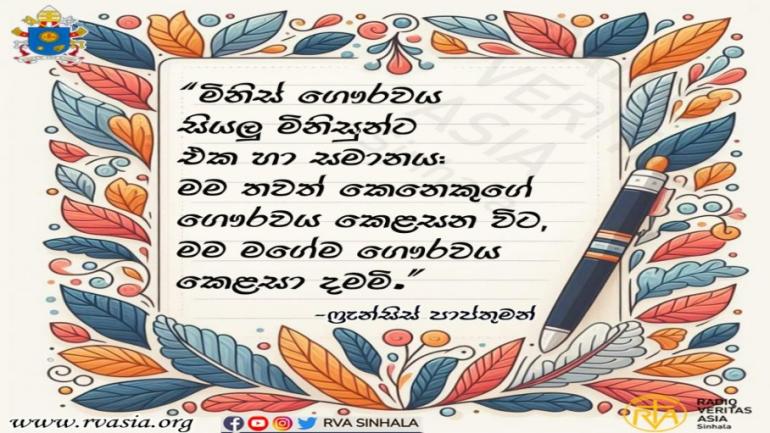 “මිනිස් ගෞරවය
සියලු මිනිසුන්ට
එක හා සමානය:
මම තවත් කෙනෙකුගේ
ගෞරවය කෙළසන විට,
මම මගේම ගෞරවය
කෙළසා දමමි.”
-ෆ්‍රැන්සිස් පාප්තුමන්
VERITAS
ASIA
Sinhala
www.rvasia.org
RVA SINHALA
RVA
RADIO
VERITAS
ASIA
Sinhala